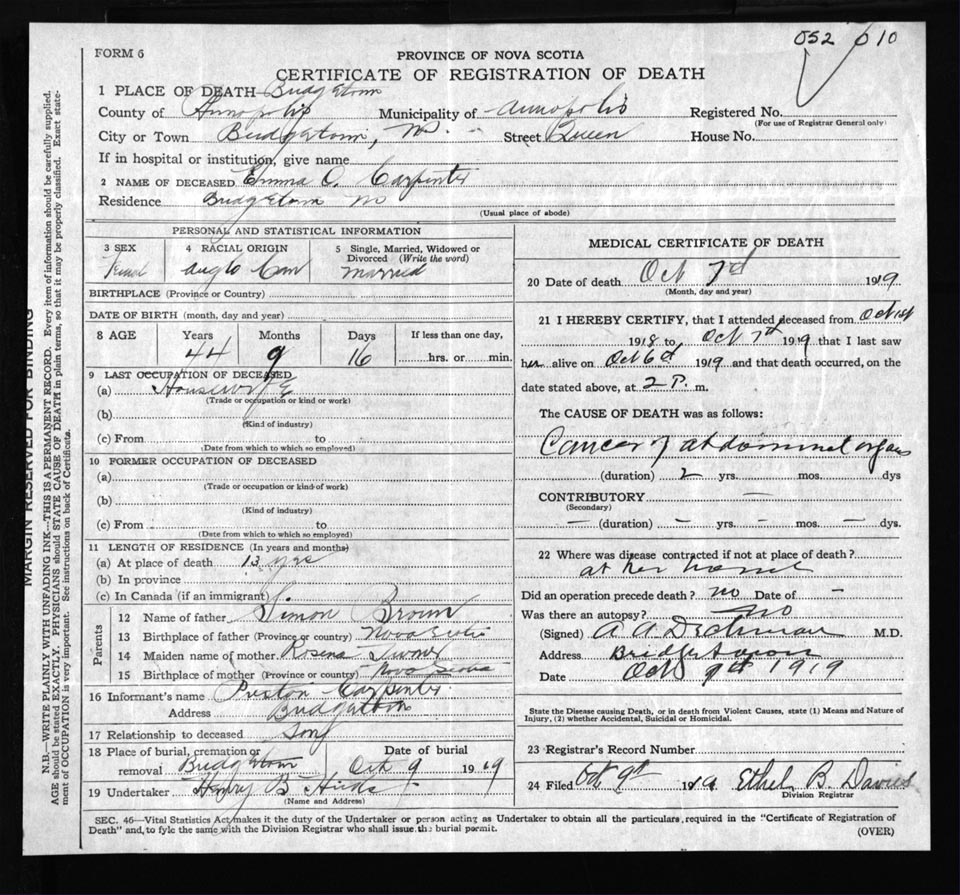 052 610
FORM 6
PROVINCE OF NOVA SCOTIA
CERTIFICATE OF REGISTRATION OF DEATH
1 PLACE OF DEATH Bridgetown
County of Annapolis Municipality of Annapolis Registered No.
(For use of Registrar General only)
City or Town Bridgetown, NS. Street Queen House No.
If in hospital or institution, give name
2 NAME OF DECEASED Emma O. Carpenter
Residence Bridgetown
(Usual place of abode)
PERSONAL AND STATISTICAL INFORMATION
3 SEX 4 RACIAL ORIGIN 5 Single, Married, Widowed or
Divorced (Write the word)
Femal Anglo Married
BIRTHPLACE (Province or Country)
DATE OF BIRTH (month, day and year)
8 AGE Years Months Days If less than one day,
44 9 16 hrs. or min.
9 LAST OCCUPATION OF DECEASED
(a) Housewife
(Trade or occupation or kind or work)
(b)
(Kind of industry)
(c) From to
(Date from which to which so employed)
10 FORMER OCCUPATION OF DECEASED
(a)
(Trade or occupation or kind of work)
(b)
(Kind of industry)
(c) From to
(Date from which to which so employed)
11 LENGTH OF RESIDENCE (In years and months)
(a) At place of death 13 yrs
(b) In province
(c) In Canada (if an immigrant)
Parents
12 Name of father Simon Brown
13 Birthplace of father (Province or country) Nova Scotia
14 Maiden name of mother Rosena Turner
15 Birthplace of mother (Province or country) Nova Scotia
16 Informant's name Preston Carpenter
Address Bridgetown
17 Relationship to deceased Son
18 Place of burial, cremation or Date of burial
removal Bridgetown Oct 9 1919
19 Undertaker Henry B Hicks
(Name and Address)
MEDICAL CERTIFICATE OF DEATH
20 Date of death Oct 7th 1919
(Month, day and year)
21 I HEREBY CERTIFY, that I attended deceased from Oct 1st
1918 to Oct 7th 1919 that I last saw
her alive on Oct 6th 1919 and that death occurred, on the
date stated above, at 2 P. m.
The CAUSE OF DEATH was as follows:
Cancer of abdominal organs
(duration) 2 yrs. mos. dys
CONTRIBUTORY —
(Secondary)
— (duration) — yrs. — mos. — dys.
22 Where was disease contracted if not at place of death?
at her
Did an operation precede death? no Date of —
Was there an autopsy? no
(Signed) A A Dechman M.D.
Address Bridgetown
Date Oct 9th 1919
State the Disease causing Death, or in death from Violent Causes, state (1) Means and Nature of
Injury, (2) whether Accidental, Suicidal or Homicidal.
23 Registrar's Record Number
24 Filed Oct 9th 1919 Ethel B. Davies
Division Registrar
SEC. 46—Vital Statistics Act makes it the duty of the Undertaker or person acting as Undertaker to obtain all the particulars required in the "Certificate of Registration of
Death" and to fyle the same with the Division Registrar who shall issue the burial permit.
(OVER)
MARGIN RESERVED FOR BINDING
N.B.—WRITE PLAINLY WITH UNFADING INK—THIS IS A PERMANENT RECORD. Every item of information should be carefully supplied.
AGE should be stated EXACTLY. PHYSICIANS should STATE CAUSE OF DEATH in plain terms, so that it may be properly classified. Exact state-
ment of OCCUPATION is very important. See instructions on back of Certificate.